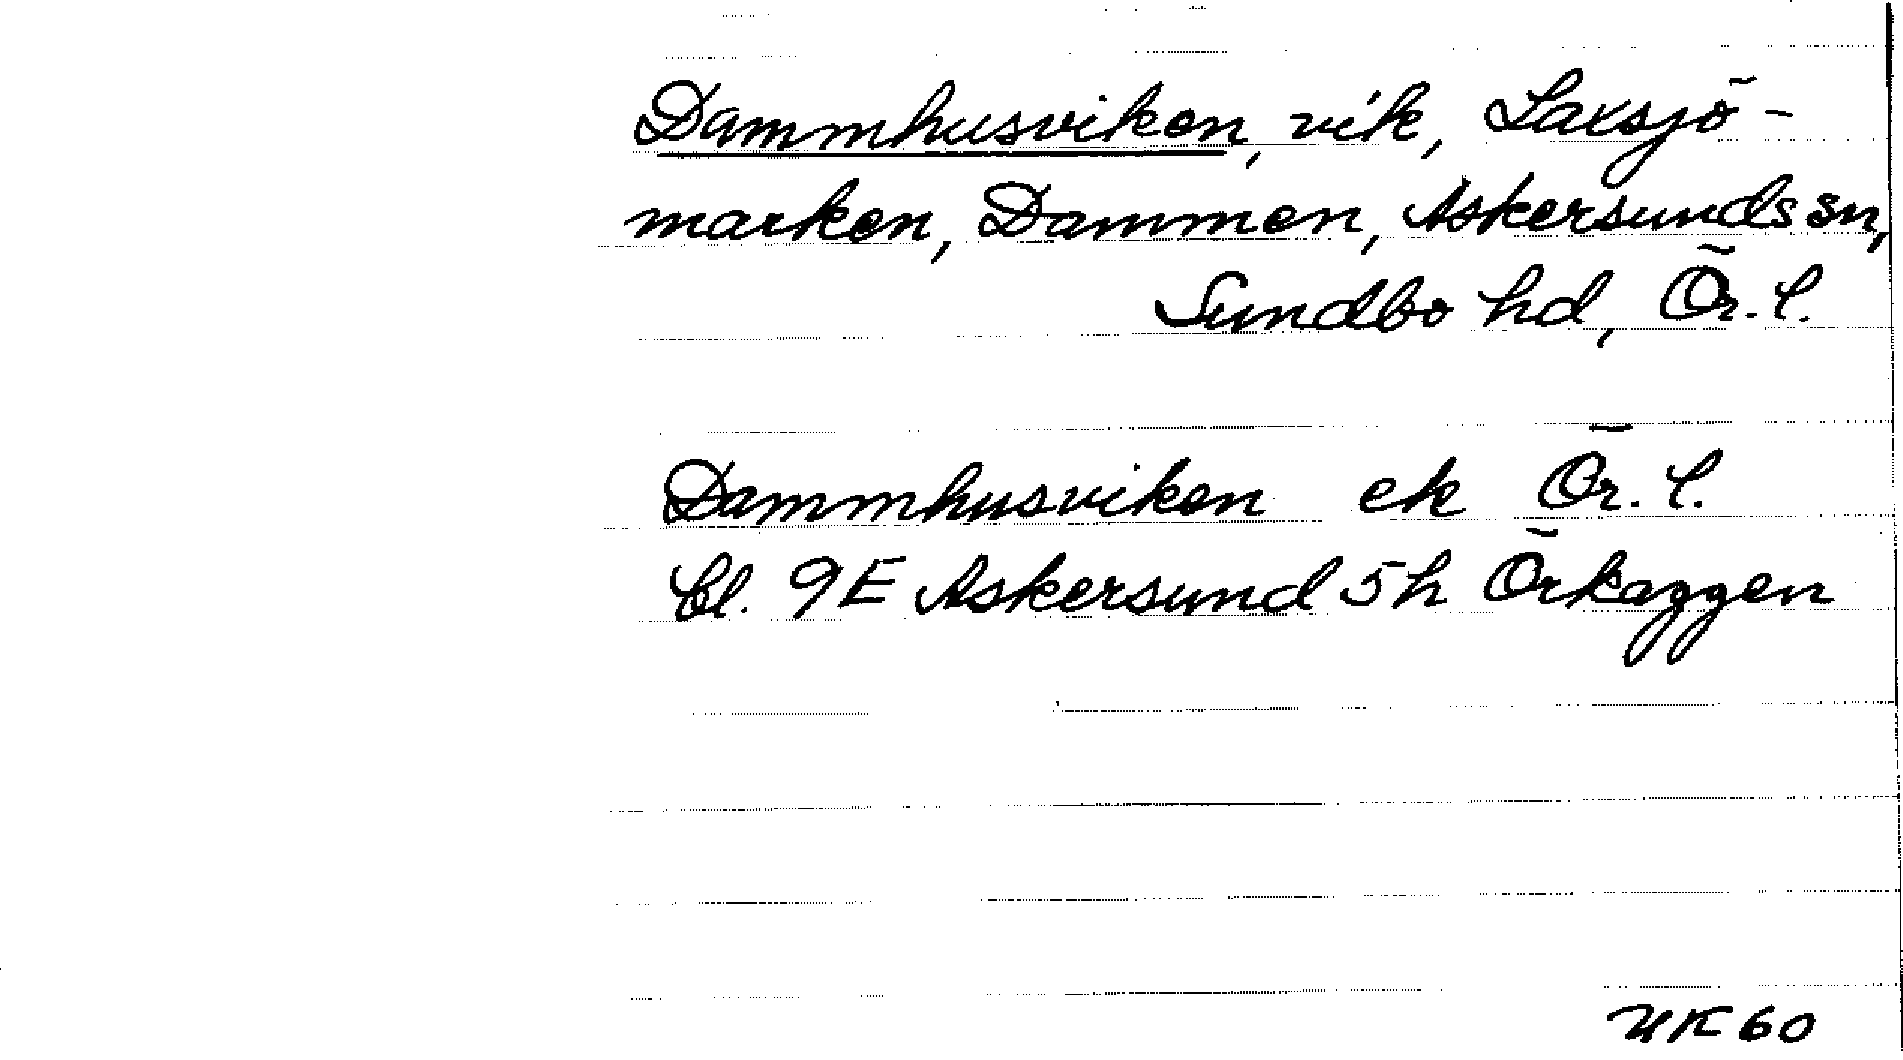 Dammhusviken, vik, Laxsjö-
marken, Dammen, Askersunds sn,
Sundbo hd, Ör. l.
Dammhusviken ek Ör. l.
bl. 9E Askersund 5h Örkaggen
UK 60